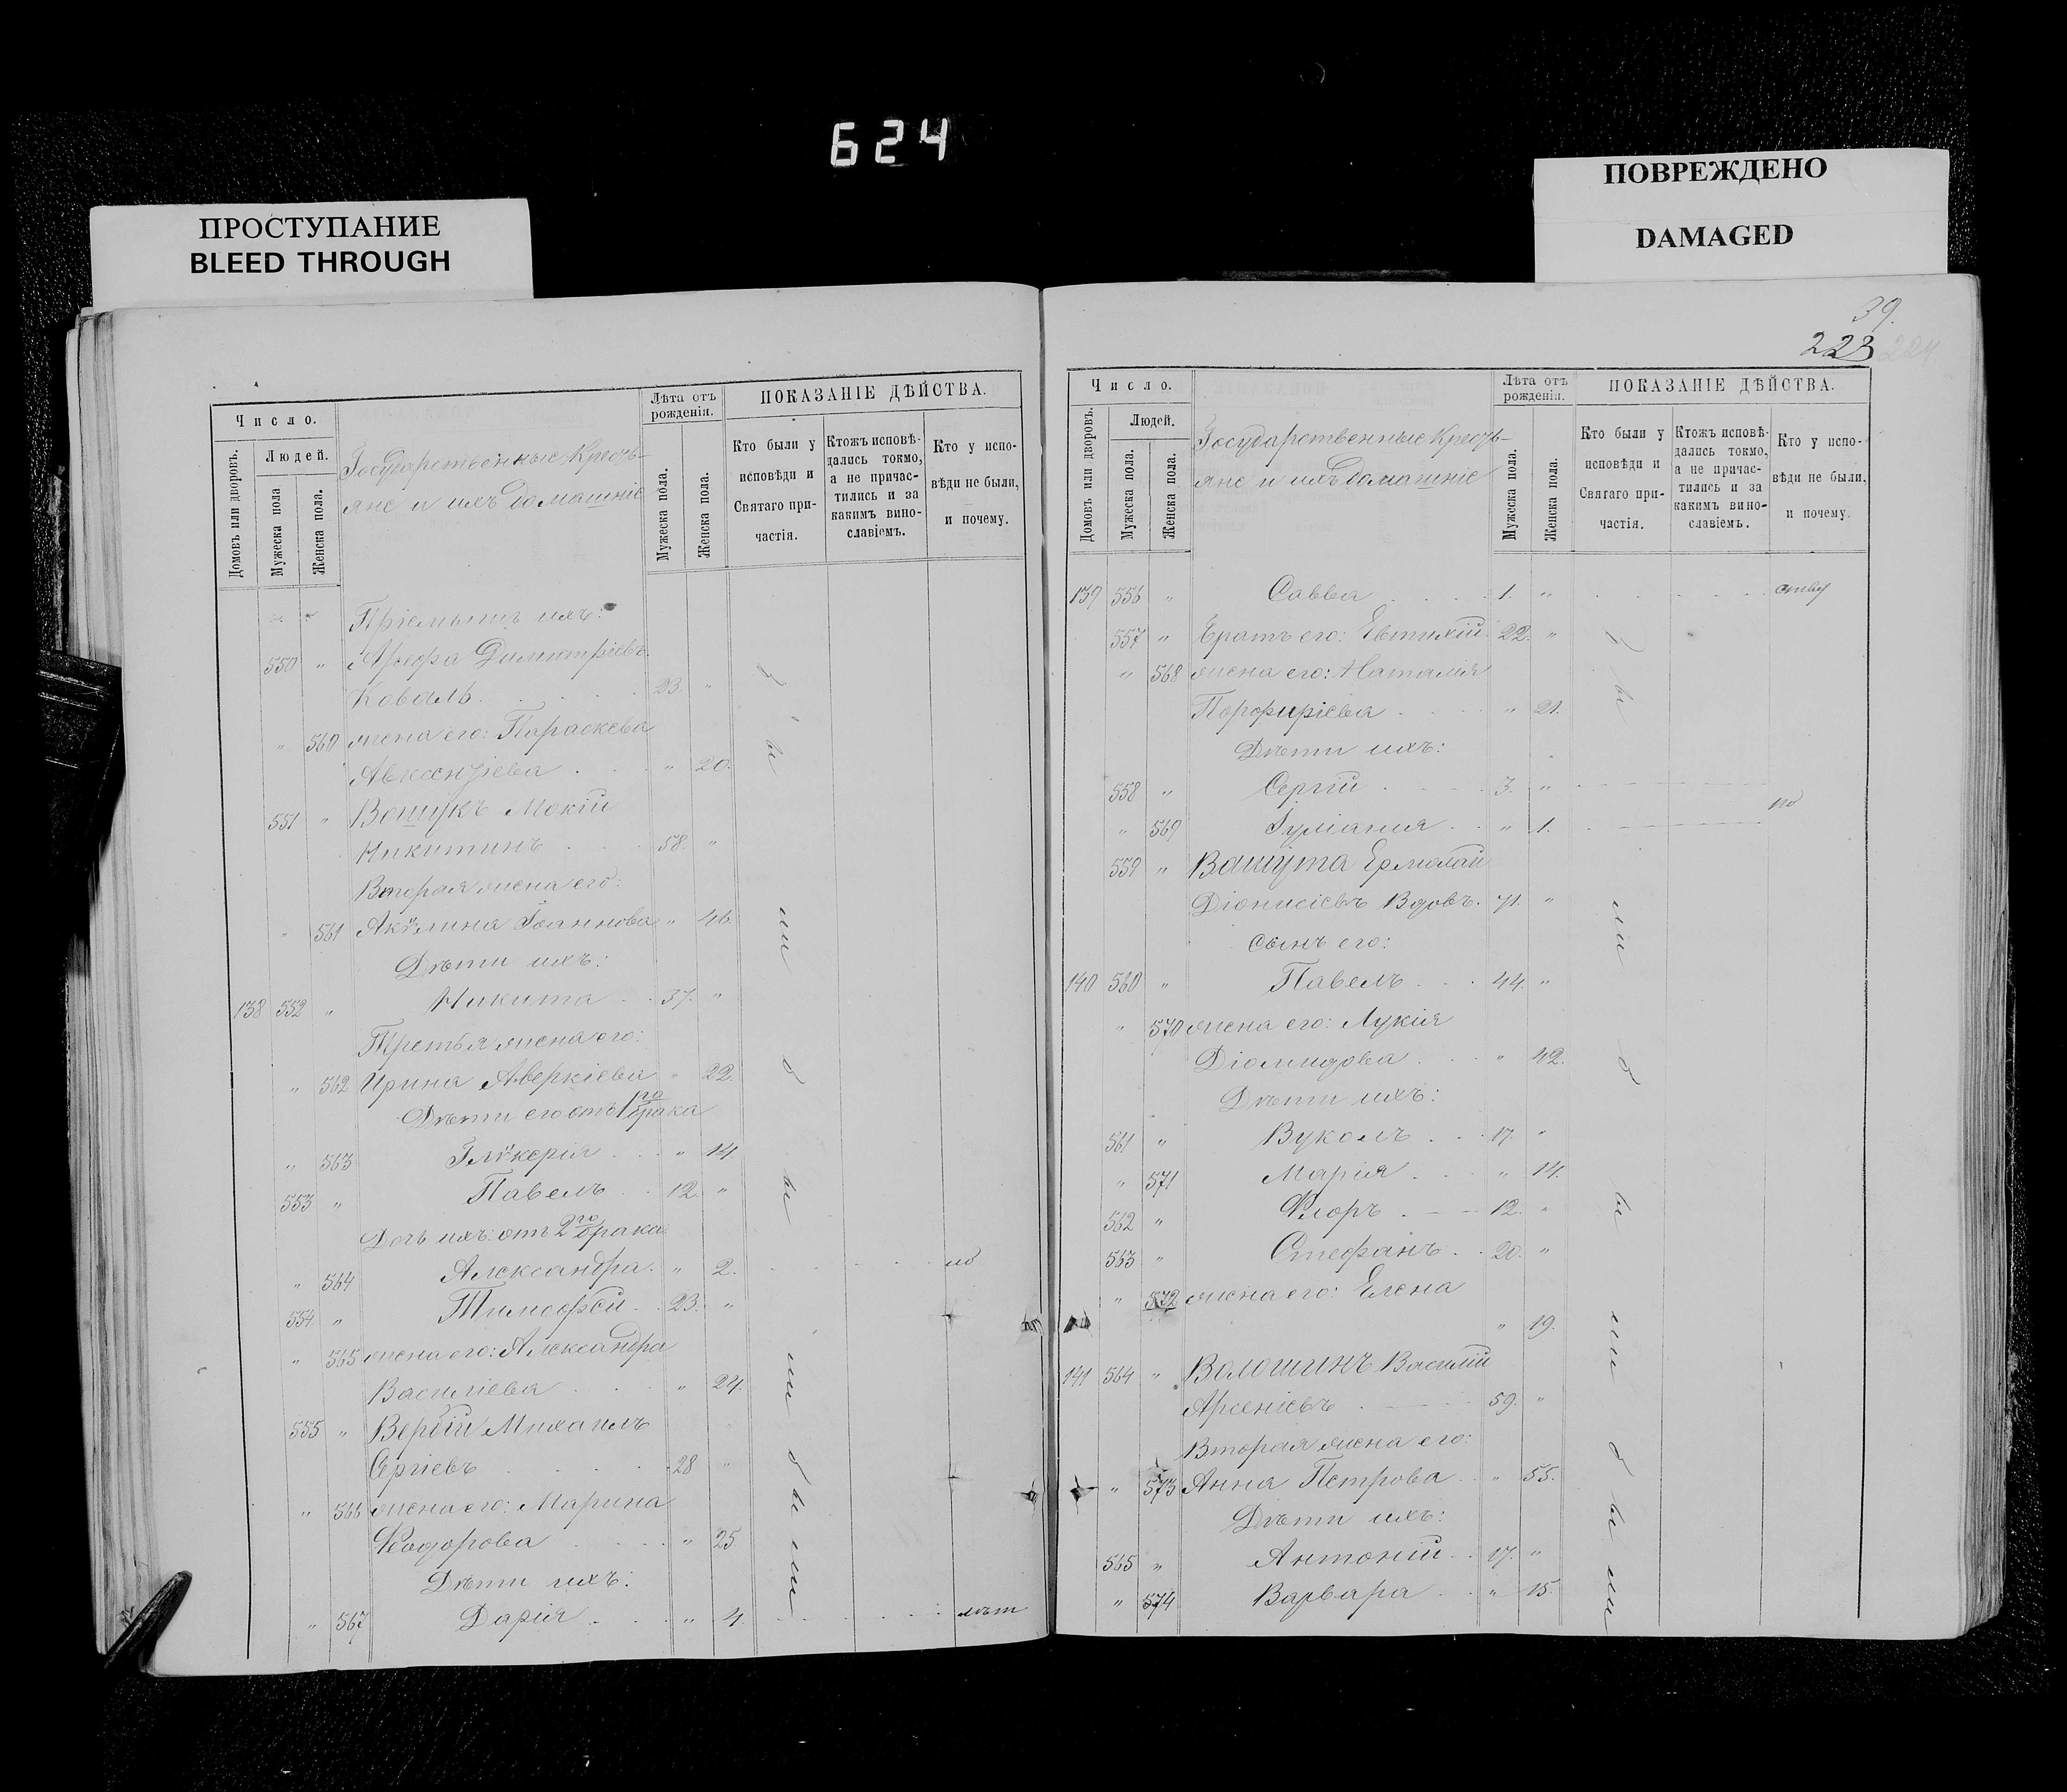 624
ПРОСТУПАНИЕ
BLEED THROUGH
ПОВРЕЖДЕНО
DAMAGED
Число.
Домовъ или дворовъ.
Людей.
Мужеска пола
Женска пола.
Государственные Кресть-
яне и ихъ домашніе
Лѣта отъ рожденія.
Мужеска пола.
Женска пола.
ПОКАЗАНІЕ ДѢЙСТВА.
Кто были у исповѣди и Святаго при-частія.
Ктожъ исповѣ-дались токмо, а не причас-тились и за какимъ вино-славіемъ.
Кто у испо-вѣди не были, и почему.
Пріемышъ ихъ:
550 " Димитріевъ
Коваль 23. "
" 560 жена его: Параскева
Авксентіева " 20.
551 " Вашукъ Мокій
Никитинъ 58. "
Вторая жена его:
" 561 Акѵлина Іоаннова " 46.
Дѣти ихъ:
138 552 " Никита 37. "
Третья жена его:
" 562 Ирина Аверкіева " 22.
Дѣти его отъ 1го брака
" 563 Глѵкерія " 14
553 " Павелъ 12. "
Дочь ихъ отъ 2го брака
" 564 Александра " 2. по
554 " Тимофей 23. "
" 565 жена его: Александра
Василіева " 24.
555 " Вербій Михаилъ
Сергіевъ 28 "
" 566 жена его: Марина
Феодорова " 25
Дѣти ихъ:
" 567 Дарія " 4. лѣт
были были
39.
223 224
Число.
Домовъ или дворовъ.
Людей.
Мужеска пола.
Женска пола.
Государственные Кресть-
яне и ихъ домашніе
Лѣта отъ рожденія.
Мужеска пола.
Женска пола.
ПОКАЗАНІЕ ДѢЙСТВА.
Кто были у исповѣди и Святаго при-частія.
Ктожъ исповѣ-дались токмо, а не причас-тились и за какимъ вино-славіемъ.
Кто у испо-вѣди не были, и почему.
139 556 " Савва 1. "
557 " Братъ его: Евтихій 22. "
" 568 жена его: Наталія
Порфиріева " 21.
Дѣти ихъ:
558 " Сергій 3. "
" 569 Іуліанія " 1. по
559 " Вашута Ермолай
Діонисіевъ Вдовъ. 71. "
сынъ его:
140 560 " Павелъ 44. "
" 570 жена его: Лукія
Діомидова " 42.
Дѣти ихъ:
561 " Вуколъ 17. "
" 571 Марія " 14.
562 " Флоръ 12. "
563 " Стефанъ 20. "
" 572 жена его: Елена
" 19.
141 564 " Волошинъ Василій
Арсеніевъ 59. "
Вторая жена его:
" 573 Анна Петрова " 55.
Дѣти ихъ:
565 " Антоній 17. "
" 574 Варвара " 15.
были были